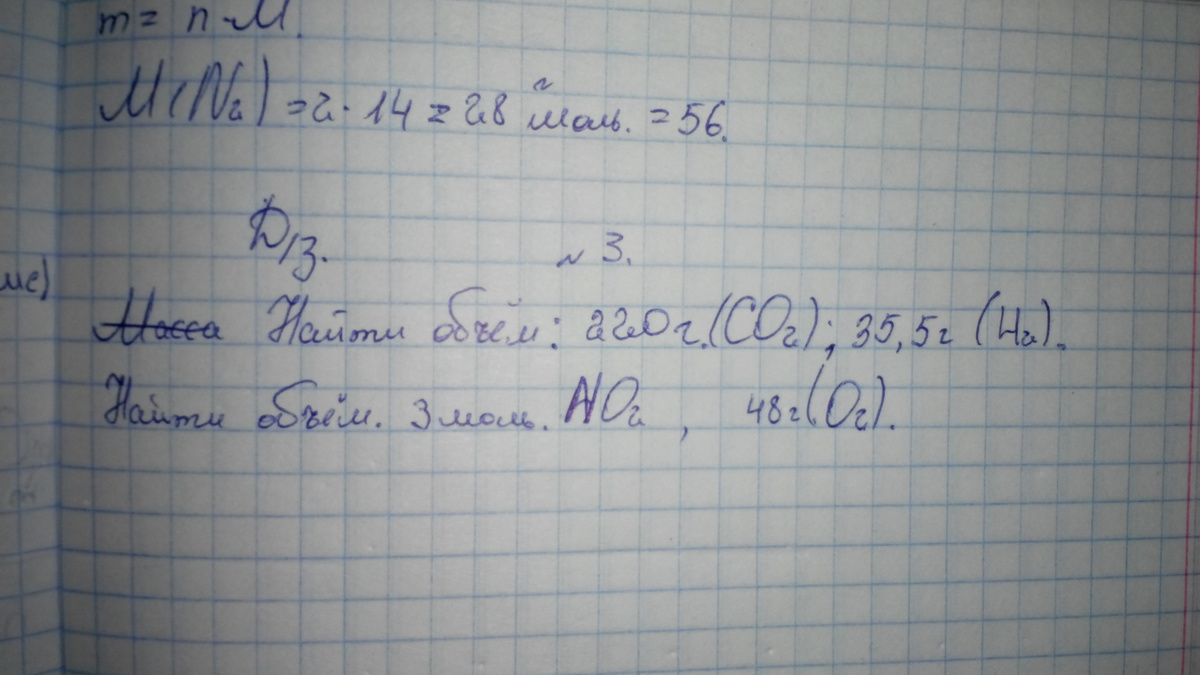 m = n · M.
M(N₂) = 2 · 14 = 28 г/моль. = 56.
Д/з. № 3.
ме)
Масса Найти объём: 220 г.(CO₂); 35,5 г (H₂).
Найти объём. 3 моль. NO₂, 48 г (O₂).